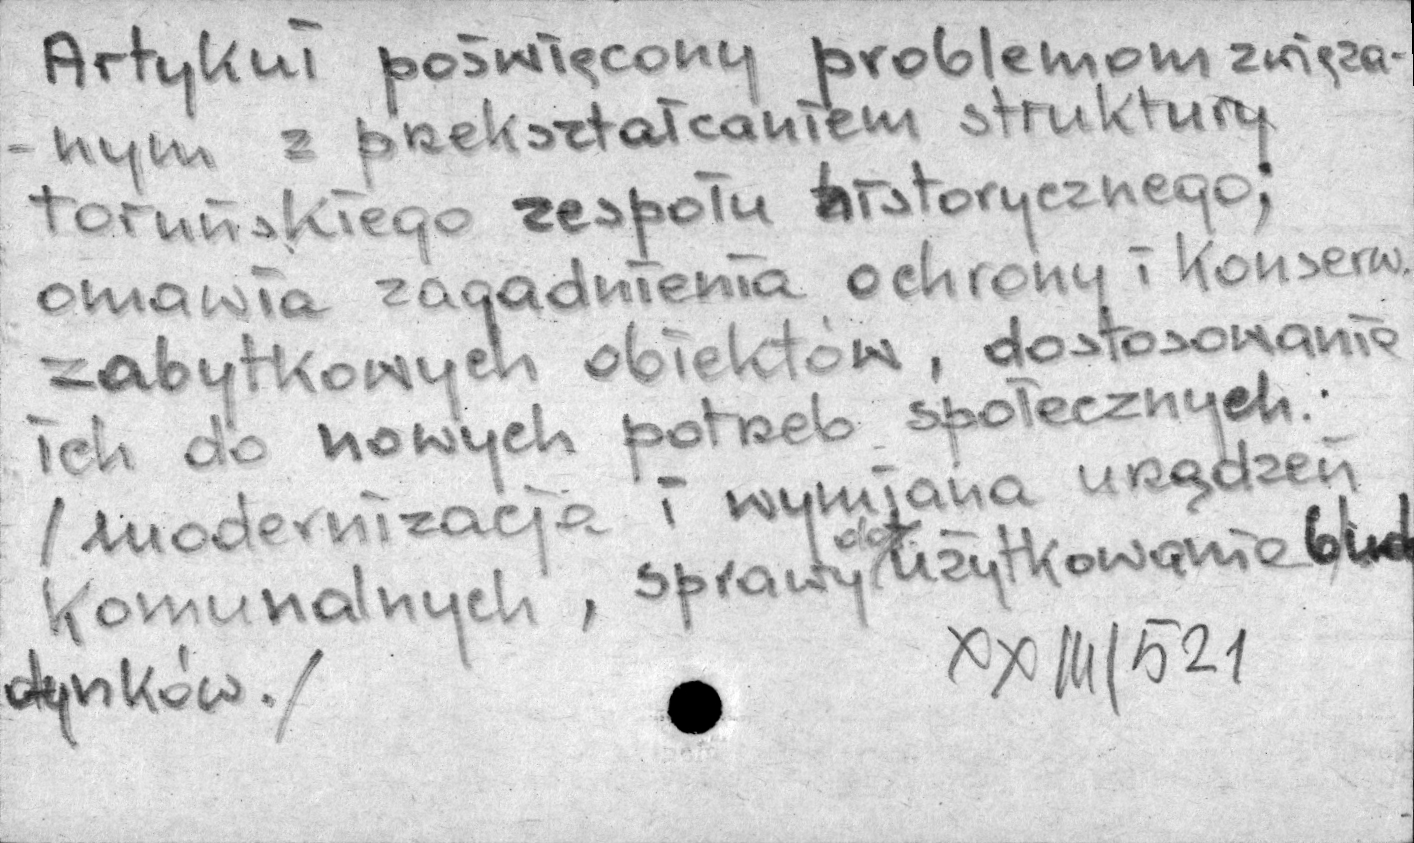 Artykuł poświęcony problemom związa-
-nym z przekształcaniem struktury
toruńskiego zespołu historycznego;
omawia zagadnienia ochrony i konserw.
zabytkowych obiektów, dostosowanie
ich do nowych potrzeb społecznych.
/modernizacja i wymiana urządzeń
komunalnych, sprawy dot. użytkowanie bu
dynków./
XXIII/521